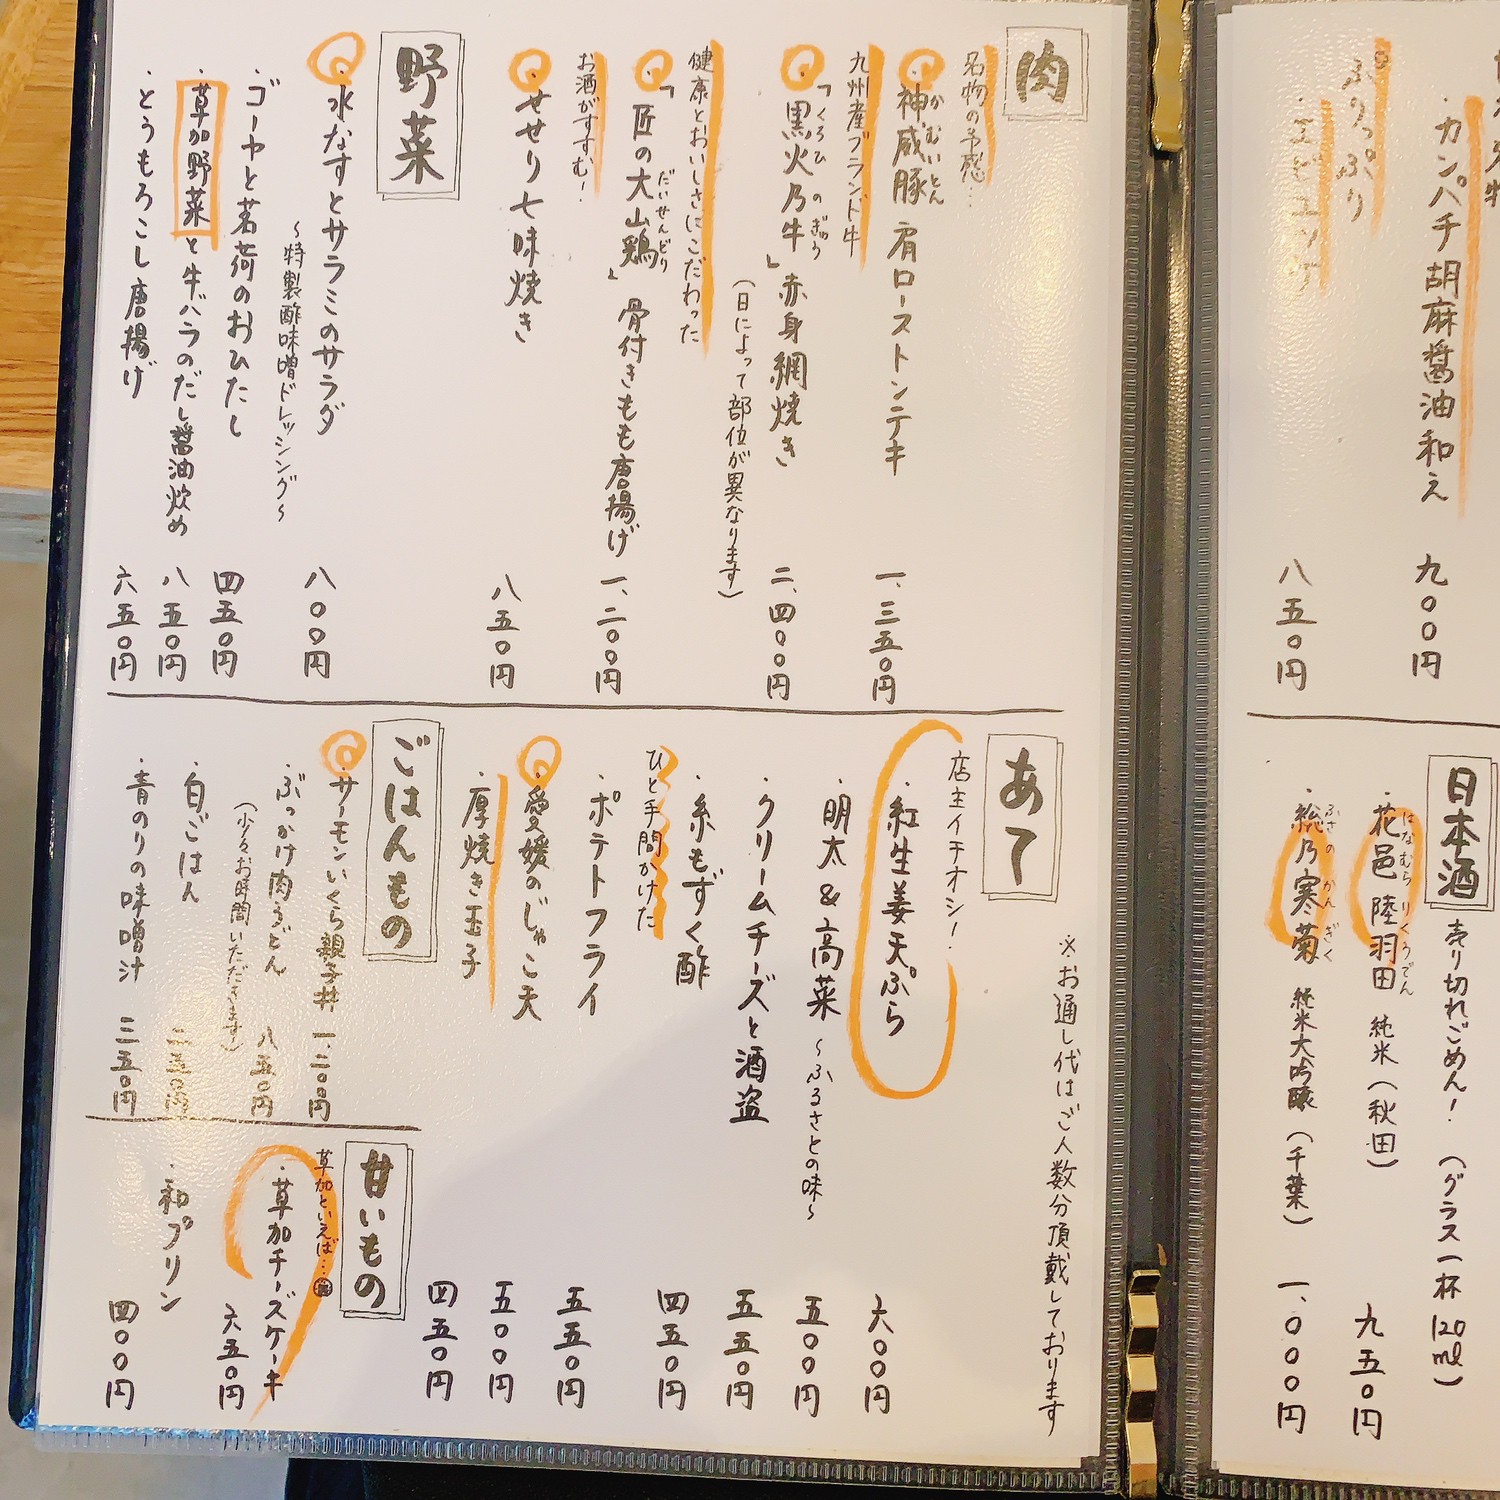 カンパチ胡麻醤油和え
九〇〇円
ぷりっぷり
八五〇円
日本酒
売り切れごめん！（グラス一杯120ml）
・花邑 陸羽田 純米（秋田）
はなむら りくうでん
九五〇円
・総乃寒菊 純米大吟醸（千葉）
ふさの かんぎく
一、〇〇〇円
肉
名物の予感…
・神威豚 肩ローストンテキ
かむいとん
一、三五〇円
九州産ブランド牛
・「黒火乃牛」赤身網焼き
くろひのぎゅう
二、四〇〇円
（日によって部位が異なります）
健康とおいしさにこだわった
・「匠の大山鶏」骨付きもも唐揚げ
だいせんどり
一、二〇〇円
お酒がすすむ！
・せせり七味焼き
八五〇円
野菜
・水なすとサラミのサラダ
八〇〇円
～特製酢味噌ドレッシング～
・ゴーヤと茗荷のおひたし
四五〇円
・草加野菜と牛バラのだし醤油炊め
八五〇円
・とうもろこし唐揚げ
六五〇円
※お通し代はご人数分頂戴しております
あて
店主イチオシ！
・紅生姜天ぷら
六〇〇円
・明太&高菜 ～ふるさとの味～
五〇〇円
・クリームチーズと酒盗
五五〇円
・糸もずく酢
四五〇円
ひと手間かけた
・ポテトフライ
五五〇円
・愛媛のじゃこ天
五〇〇円
・厚焼き玉子
四五〇円
ごはんもの
・サーモンいくら親子丼
一、二〇〇円
・ぶっかけ肉うどん
八五〇円
（少々お時間いただきます）
・白ごはん
二五〇円
・青のりの味噌汁
三五〇円
甘いもの
草加といえば…
・草加チーズケーキ
六五〇円
・和プリン
四〇〇円